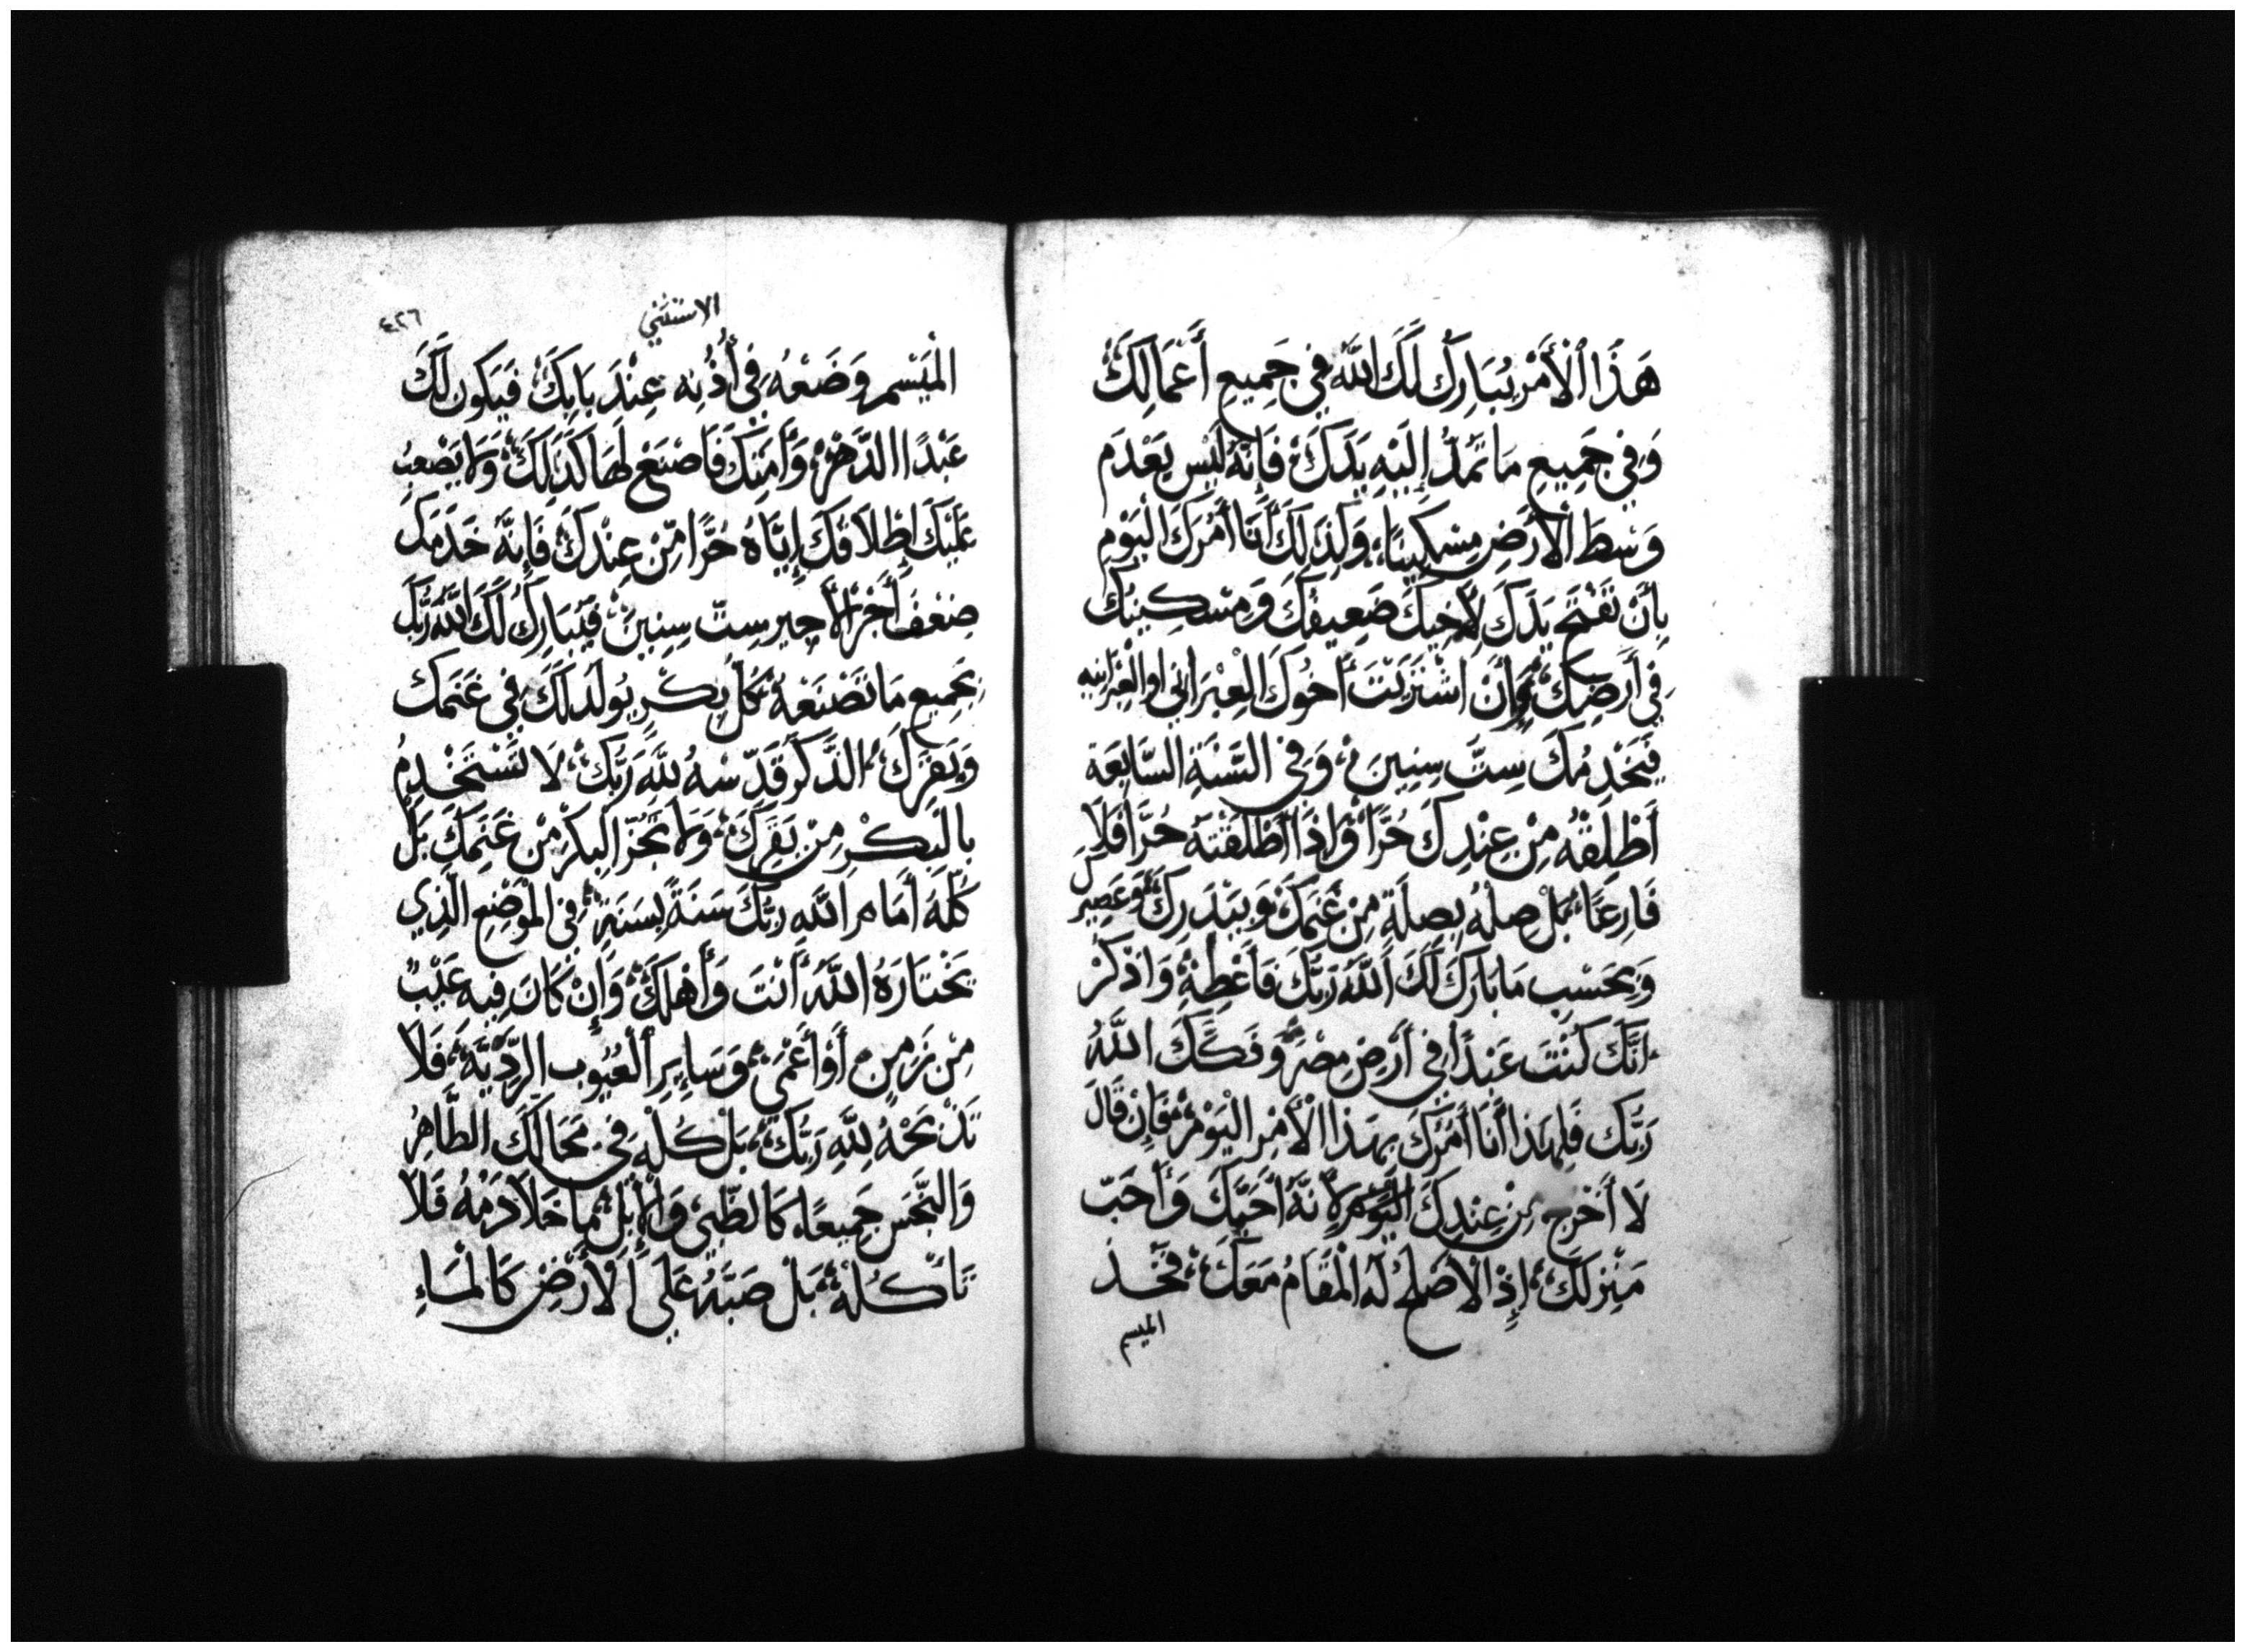 هَذَا ٱلْأَمْرِ يُبَارِكُ لَكَ اللَّهُ فِي جَمِيعِ أَعْمَالِكَ
وَفِي جَمِيعِ مَا تَمُدُّ إِلَيْهِ يَدَكَ، فَإِنَّهُ لَيْسَ يَعْدَم
وَسَطَ الْأَرْضِ مِسْكِينًا، وَلِذَلِكَ أَنَا أَمُرُكَ الْيَوْمِ
بِأَنْ تَفْتَحَ يَدَكَ لِأَخِيكَ ضَعِيفِكَ وَمِسْكِينِكَ
فِي أَرْضِكَ، وَإِنْ اشْتَرَيْتَ أَخُوكَ الْعِبْرَانِي اوالْعِبْرَانِيه
فَيَخْدِمُكَ سِتَّ سِنِينَ، وَفِي السَّنَةِ السَّابِعَة
أَطْلِقْهُ مِنْ عِنْدِكَ حُرًّا وَإِذَا أَطْلَقْتَهُ حُرًّا فَلَا يَكُنْ
فَارِغًا، بَلْ صِلْهُ بِصِلَةٍ مِنْ غَنَمِكَ وَبَيْدَرِكَ، وَعَصِيرِكَ
وَبِحَسْبِ مَا بَارَكَ لَكَ اللَّهُ رَبُّكَ فَأَعْطِهْ، وَاذْكُرْ
انَّكَ كُنْتَ عَبْدًا فِي أَرْضِ مِصْرَ، وَفَكَّكَ اللَّهُ
رَبُّكَ فَلِهَذَا أَنَا أَمُرُكَ بِهَذَا الْأَمْرِ الْيَوْمَ، فَإِنْ قَالَ
لَا أَخْرُج مِنْ عِنْدِكَ الْيَوْمَ لِأَنَّهُ أَحَبَّكَ وَأَحَبّ
مَنْزِلَكَ، إِذِ الْأَصْلَحُ لَهُ الْمُقَامُ مَعَكَ، فَخُذ
الميسم
الاستثني
٤٢٦
الْمَيْسَم وَضَعْهُ فِي أُذُنِه عِنْدَ بَابِكَ، فَيَكُون لَكَ
عَبْدًا الدَّهْرَ، وَأَمَتِكَ فَاصْنَعْ لَهَا كَذَلِكَ، وَلَا يَصْعُبُ
عَلَيْكَ إِطْلَاقَكَ إِيَّاهُ حُرًّا مِنْ عِنْدِكَ، فَإِنَّهُ خَدَمَكَ
ضِعْفَ أَجْرِ الْأَجِيرِ سِتّ سِنِينَ، فَيُبَارِكُ لَكَ اللَّهُ رَبُّكَ
بِجَمِيعِ مَا تَصْنَعْهُ، كُلّ بِكْرٍ يُولَدُ لَكَ فِي غَنَمِكَ
وَبَقَرِكَ، الذَّكَرُ قَدِّسْهُ لِلَّهِ رَبُّكَ، لَا تَسْتَخْدِمُ
بِالْبِكْرِ مِنْ بَقَرِكَ، وَلَا تَجُزّ الْبِكْرَ مِنْ غَنَمِكَ بَلْ
كُلْهُ أَمَام اللَّهِ رَبُّكَ سَنَةً بِسَنَةٍ، فِي الْمَوْضِعِ الَّذِي
يَخْتَارَهُ اللَّهُ أَنْتَ وَأَهْلِكَ، وَإِنْ كَانَ فِيهِ عَيْبٌ
مِنْ زَمِنٍ أَوْ أَعْمَى، وَسَايِرِ الْعُيُوبِ الرَّدِيَّةَ، فَلَا
تَذْبَحْهُ لِلَّهِ رَبُّكَ، بَلْ كُلْهُ فِي مَحَالِّكَ الطَّاهِرُ
وَالنَّجِسَ جَمِيعًا، كَالظَّبْيِ، وَالْإِبِلْ، مَا خَلَا دَمُهُ فَلَا
تَأْكُلْهُ، بَلْ صَبَّهُ عَلَى الْأَرْضِ كَالْمَاءِ